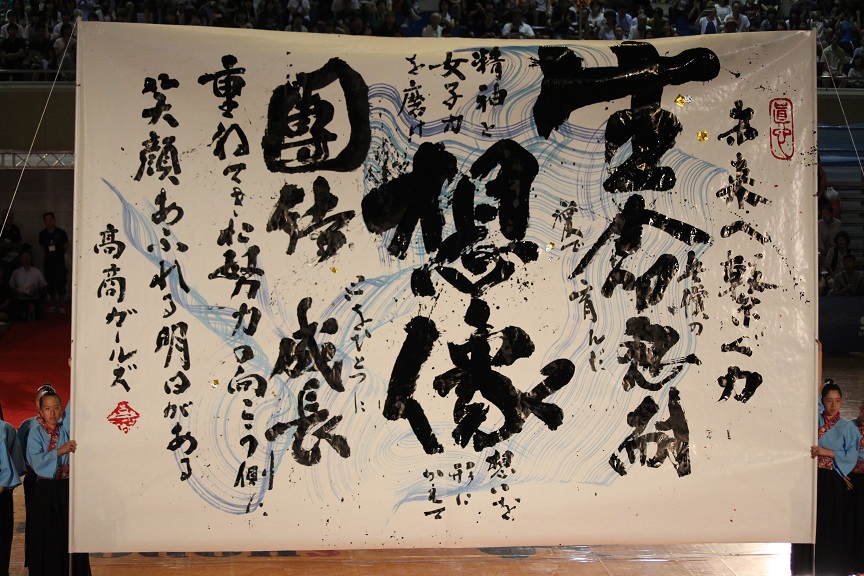 未来へ繋ぐ力
礼儀の
生命忍耐
檀で育んだ
精神と
女子力
を磨け
想像
想いを
形に
かえて
團結 成長
心をひとつに
重ねてきた努力の向こう側に
笑顔あふれる明日がある
高商ガールズ